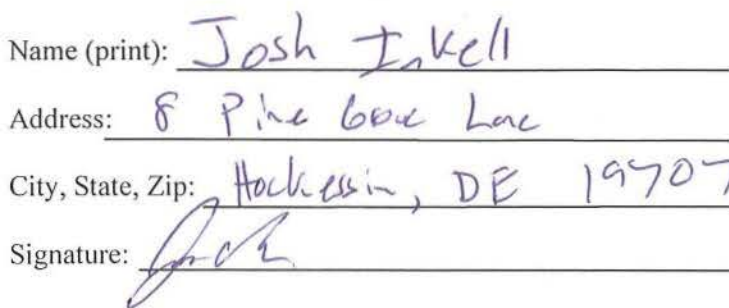 Name (print): Josh Inkell
Address: 8 Pine Lane
City, State, Zip: Hockessin, DE 19707
Signature: